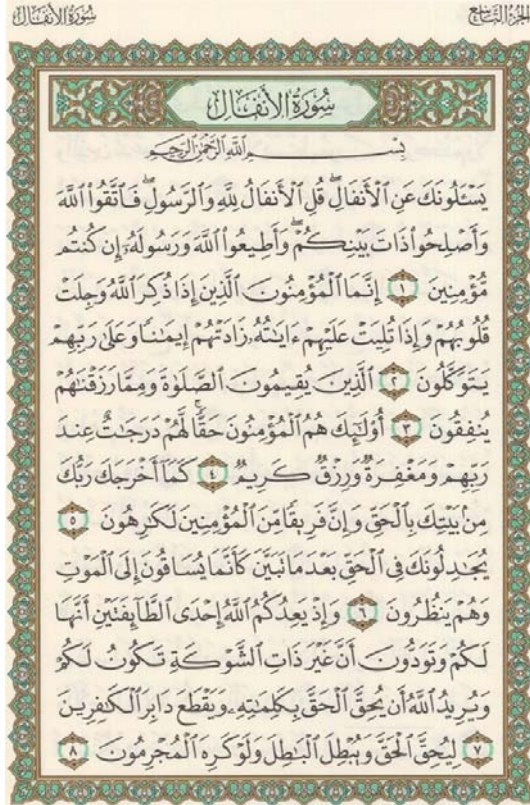 سُورَةُ الأَنفَالِ
الجُزْءُ التَّاسِعُ
سُورَةُ الأَنفَالِ
بِسْمِ ٱللَّهِ ٱلرَّحْمَٰنِ ٱلرَّحِيمِ
يَسْـَٔلُونَكَ عَنِ ٱلْأَنفَالِۖ قُلِ ٱلْأَنفَالُ لِلَّهِ وَٱلرَّسُولِۖ فَٱتَّقُوا۟ ٱللَّهَ
وَأَصْلِحُوا۟ ذَاتَ بَيْنِكُمْۖ وَأَطِيعُوا۟ ٱللَّهَ وَرَسُولَهُۥٓ إِن كُنتُم
مُّؤْمِنِينَ ١ إِنَّمَا ٱلْمُؤْمِنُونَ ٱلَّذِينَ إِذَا ذُكِرَ ٱللَّهُ وَجِلَتْ
قُلُوبُهُمْ وَإِذَا تُلِيَتْ عَلَيْهِمْ ءَايَٰتُهُۥ زَادَتْهُمْ إِيمَٰنًا وَعَلَىٰ رَبِّهِمْ
يَتَوَكَّلُونَ ٢ ٱلَّذِينَ يُقِيمُونَ ٱلصَّلَوٰةَ وَمِمَّا رَزَقْنَٰهُمْ
يُنفِقُونَ ٣ أُو۟لَٰٓئِكَ هُمُ ٱلْمُؤْمِنُونَ حَقًّاۚ لَّهُمْ دَرَجَٰتٌ عِندَ
رَبِّهِمْ وَمَغْفِرَةٌ وَرِزْقٌ كَرِيمٌ ٤ كَمَآ أَخْرَجَكَ رَبُّكَ
مِنۢ بَيْتِكَ بِٱلْحَقِّ وَإِنَّ فَرِيقًا مِّنَ ٱلْمُؤْمِنِينَ لَكَٰرِهُونَ ٥
يُجَٰدِلُونَكَ فِى ٱلْحَقِّ بَعْدَ مَا تَبَيَّنَ كَأَنَّمَا يُسَاقُونَ إِلَى ٱلْمَوْتِ
وَهُمْ يَنظُرُونَ ٦ وَإِذْ يَعِدُكُمُ ٱللَّهُ إِحْدَى ٱلطَّآئِفَتَيْنِ أَنَّهَا
لَكُمْ وَتَوَدُّونَ أَنَّ غَيْرَ ذَاتِ ٱلشَّوْكَةِ تَكُونُ لَكُمْ
وَيُرِيدُ ٱللَّهُ أَن يُحِقَّ ٱلْحَقَّ بِكَلِمَٰتِهِۦ وَيَقْطَعَ دَابِرَ ٱلْكَٰفِرِينَ
٧ لِيُحِقَّ ٱلْحَقَّ وَيُبْطِلَ ٱلْبَٰطِلَ وَلَوْ كَرِهَ ٱلْمُجْرِمُونَ ٨